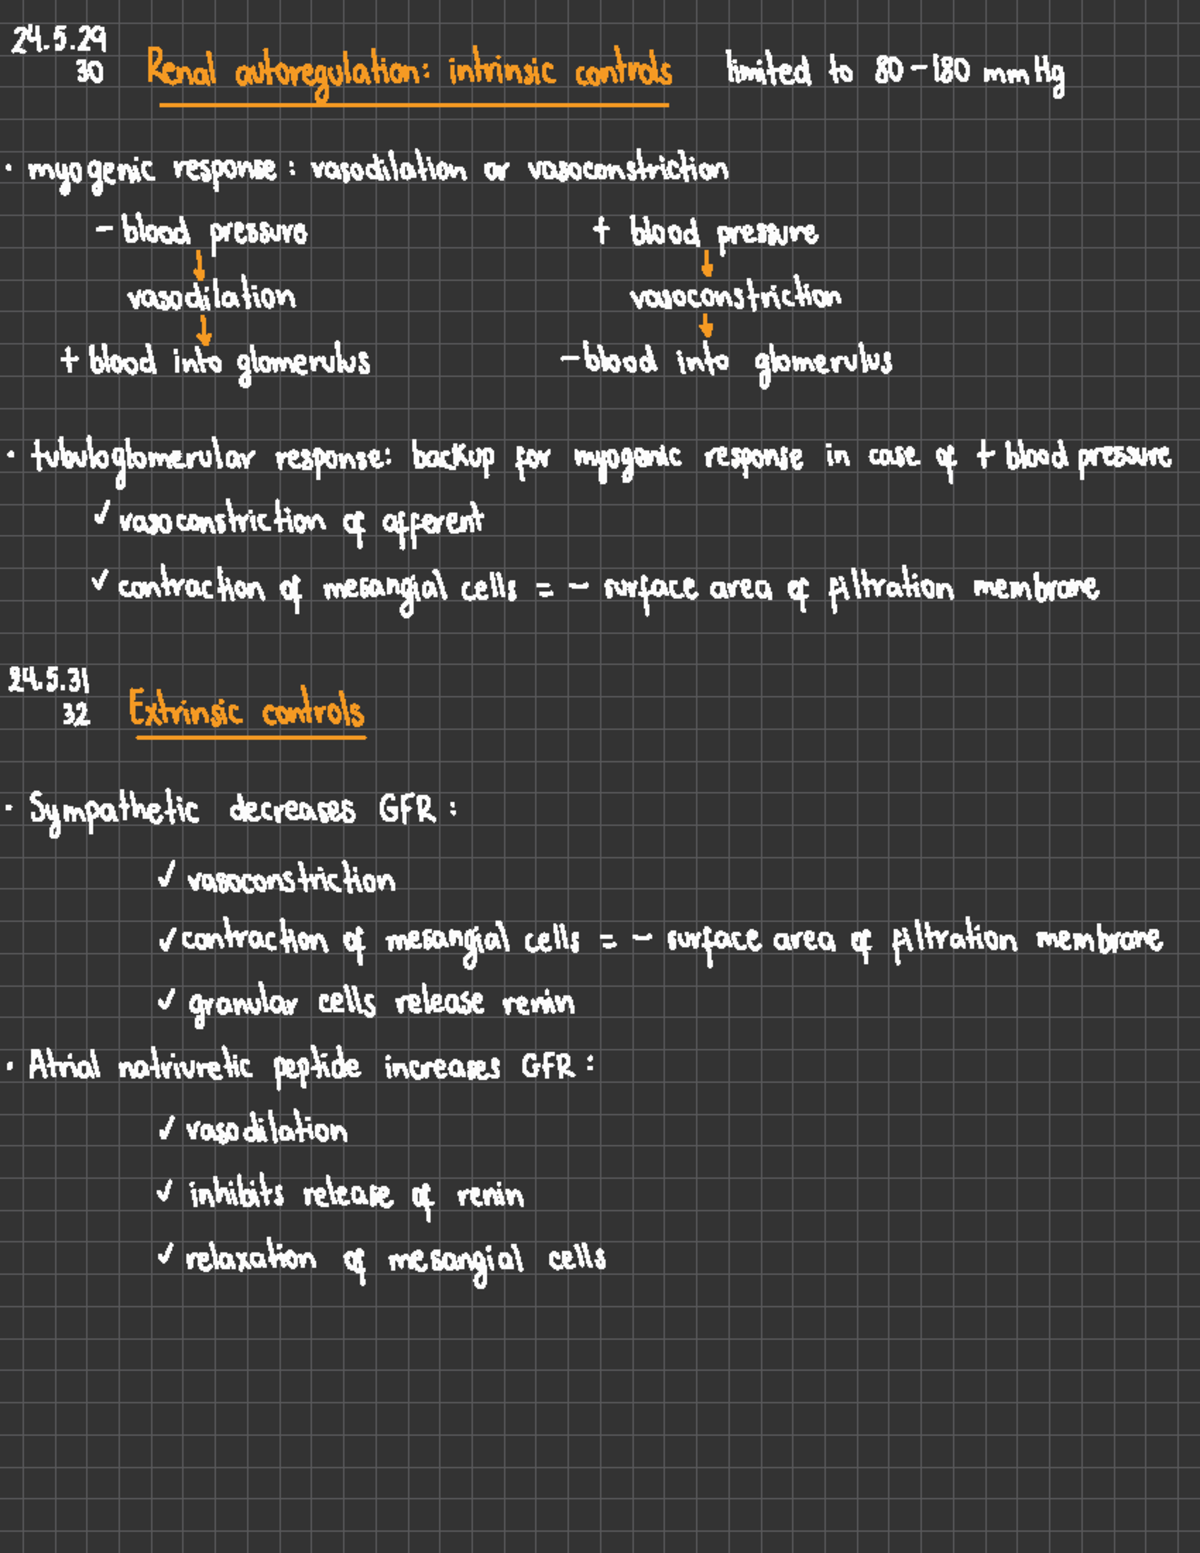 24.5.29
30 Renal autoregulation: intrinsic controls limited to 80-180 mm Hg
· myogenic response: vasodilation or vasoconstriction
- blood pressure + blood pressure
↓ ↓
vasodilation vasoconstriction
↓ ↓
+ blood into glomerulus - blood into glomerulus
· tubuloglomerular response: backup for myogenic response in case of + blood pressure
✓ vasoconstriction of afferent
✓ contraction of mesangial cells = - surface area of filtration membrane
24.5.31
32 Extrinsic controls
· Sympathetic decreases GFR:
✓ vasoconstriction
✓ contraction of mesangial cells = - surface area of filtration membrane
✓ granular cells release renin
· Atrial natriuretic peptide increases GFR:
✓ vasodilation
✓ inhibits release of renin
✓ relaxation of mesangial cells